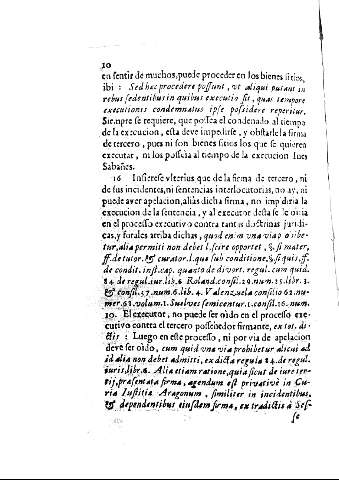 10
en sentir de muchos, puede proceder en los bienes sitios,
ibi : Sed hac procedere possunt, vt aliqui putant in
rebus sedentibus in quibus executio fit, quas tempore
executionis condemnatus ipse possidere reperitur.
Siempre se requiere, que possea el condenado al tiempo
de la execucion, esta deve impedirse, y obstarle la firma
de tercero, pues ni son bienes sitios los que se quieren
executar, ni los possehia al tiempo de la execucion Iues
Sabañes.
16 Infierese vlterius que de la firma de tercero, ni
de sus incidentes, ni sentencias interlocutorias, no ay, ni
puede aver apelacion, aliàs dicha firma, no impidiria la
execucion de la sentencia, y al executor desta se le oiria
en el processo executivo contra tantas doctrinas juridi-
cas, y forales arriba dichas, quod enim vna via prohibe-
tur, alia permiti non debet l. scire oportet, §. si mater,
ff. de tutor. & curator. l. qua sub conditione, §. si quis, ff.
de condit. inst. cap. quanto de divort. regul. cum quid.
84 de regul. iur. lib. 6 Roland. consil. 29. num. 25. lib. 3.
& consil. 37. num. 6. lib. 4. Valenzuela consilio 62. nu-
mer. 61. volum. 1. Suelves semicentur. 1. consil. 26. num.
10. El executor, no puede ser oido en el processo exe-
cutivo contra el tercero possehedor firmante, ex tot. di-
ctis : Luego en este processo, ni por via de apelacion
deve ser oido, cum quid vna via prohibetur alicui ad
id alia non debet admitti, ex dicta regula 84. de regul.
iuris, libr. 6. Alia etiam ratione, quia sicut de iure ter-
tij, præsentata firma, agendum est privativè in Cu-
ria Iustitiæ Aragonum, similiter in incidentibus,
& dependentibus eiusdem firma, ex tradictis à Ses-
se